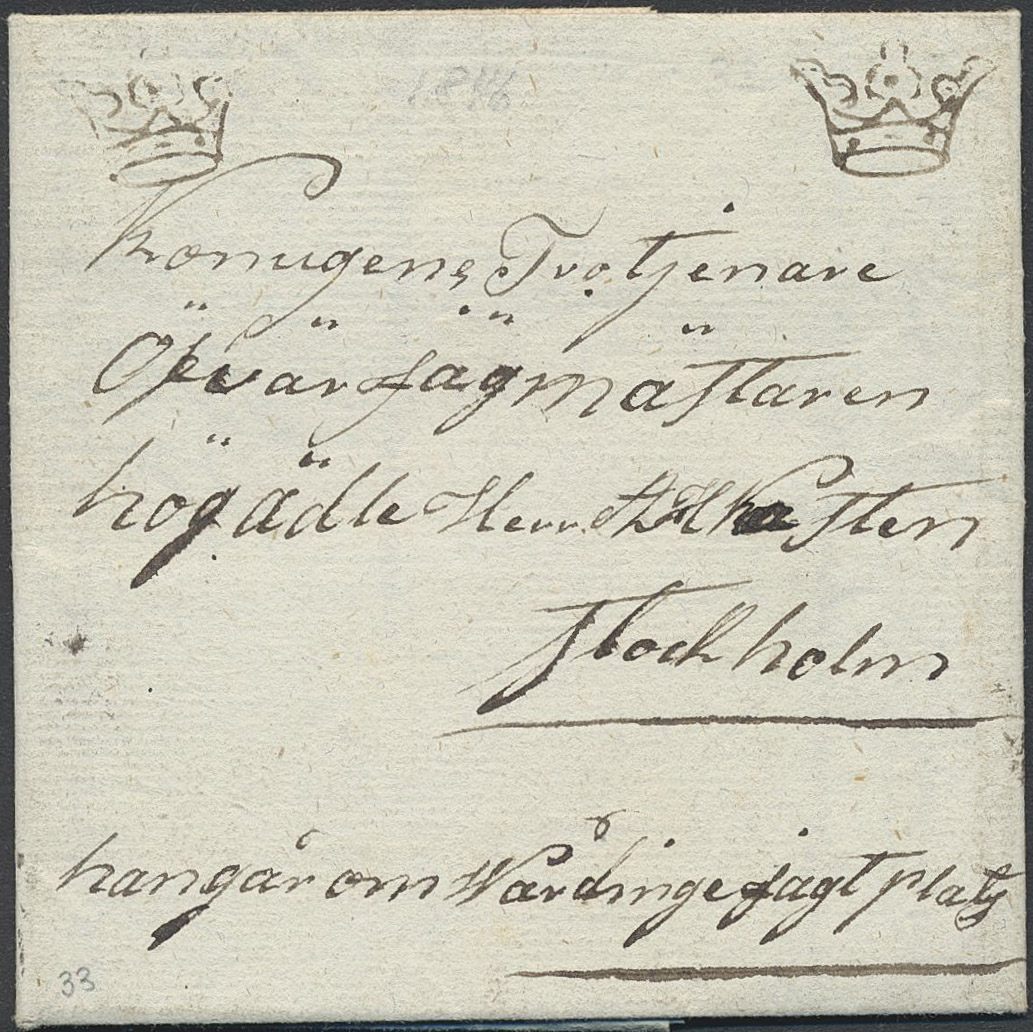 1846
Konugens Trotjenare
Öfvär Jägmästaren
hög ädle Herr
Stockholm
han går om Wårdinge jagt plats
33